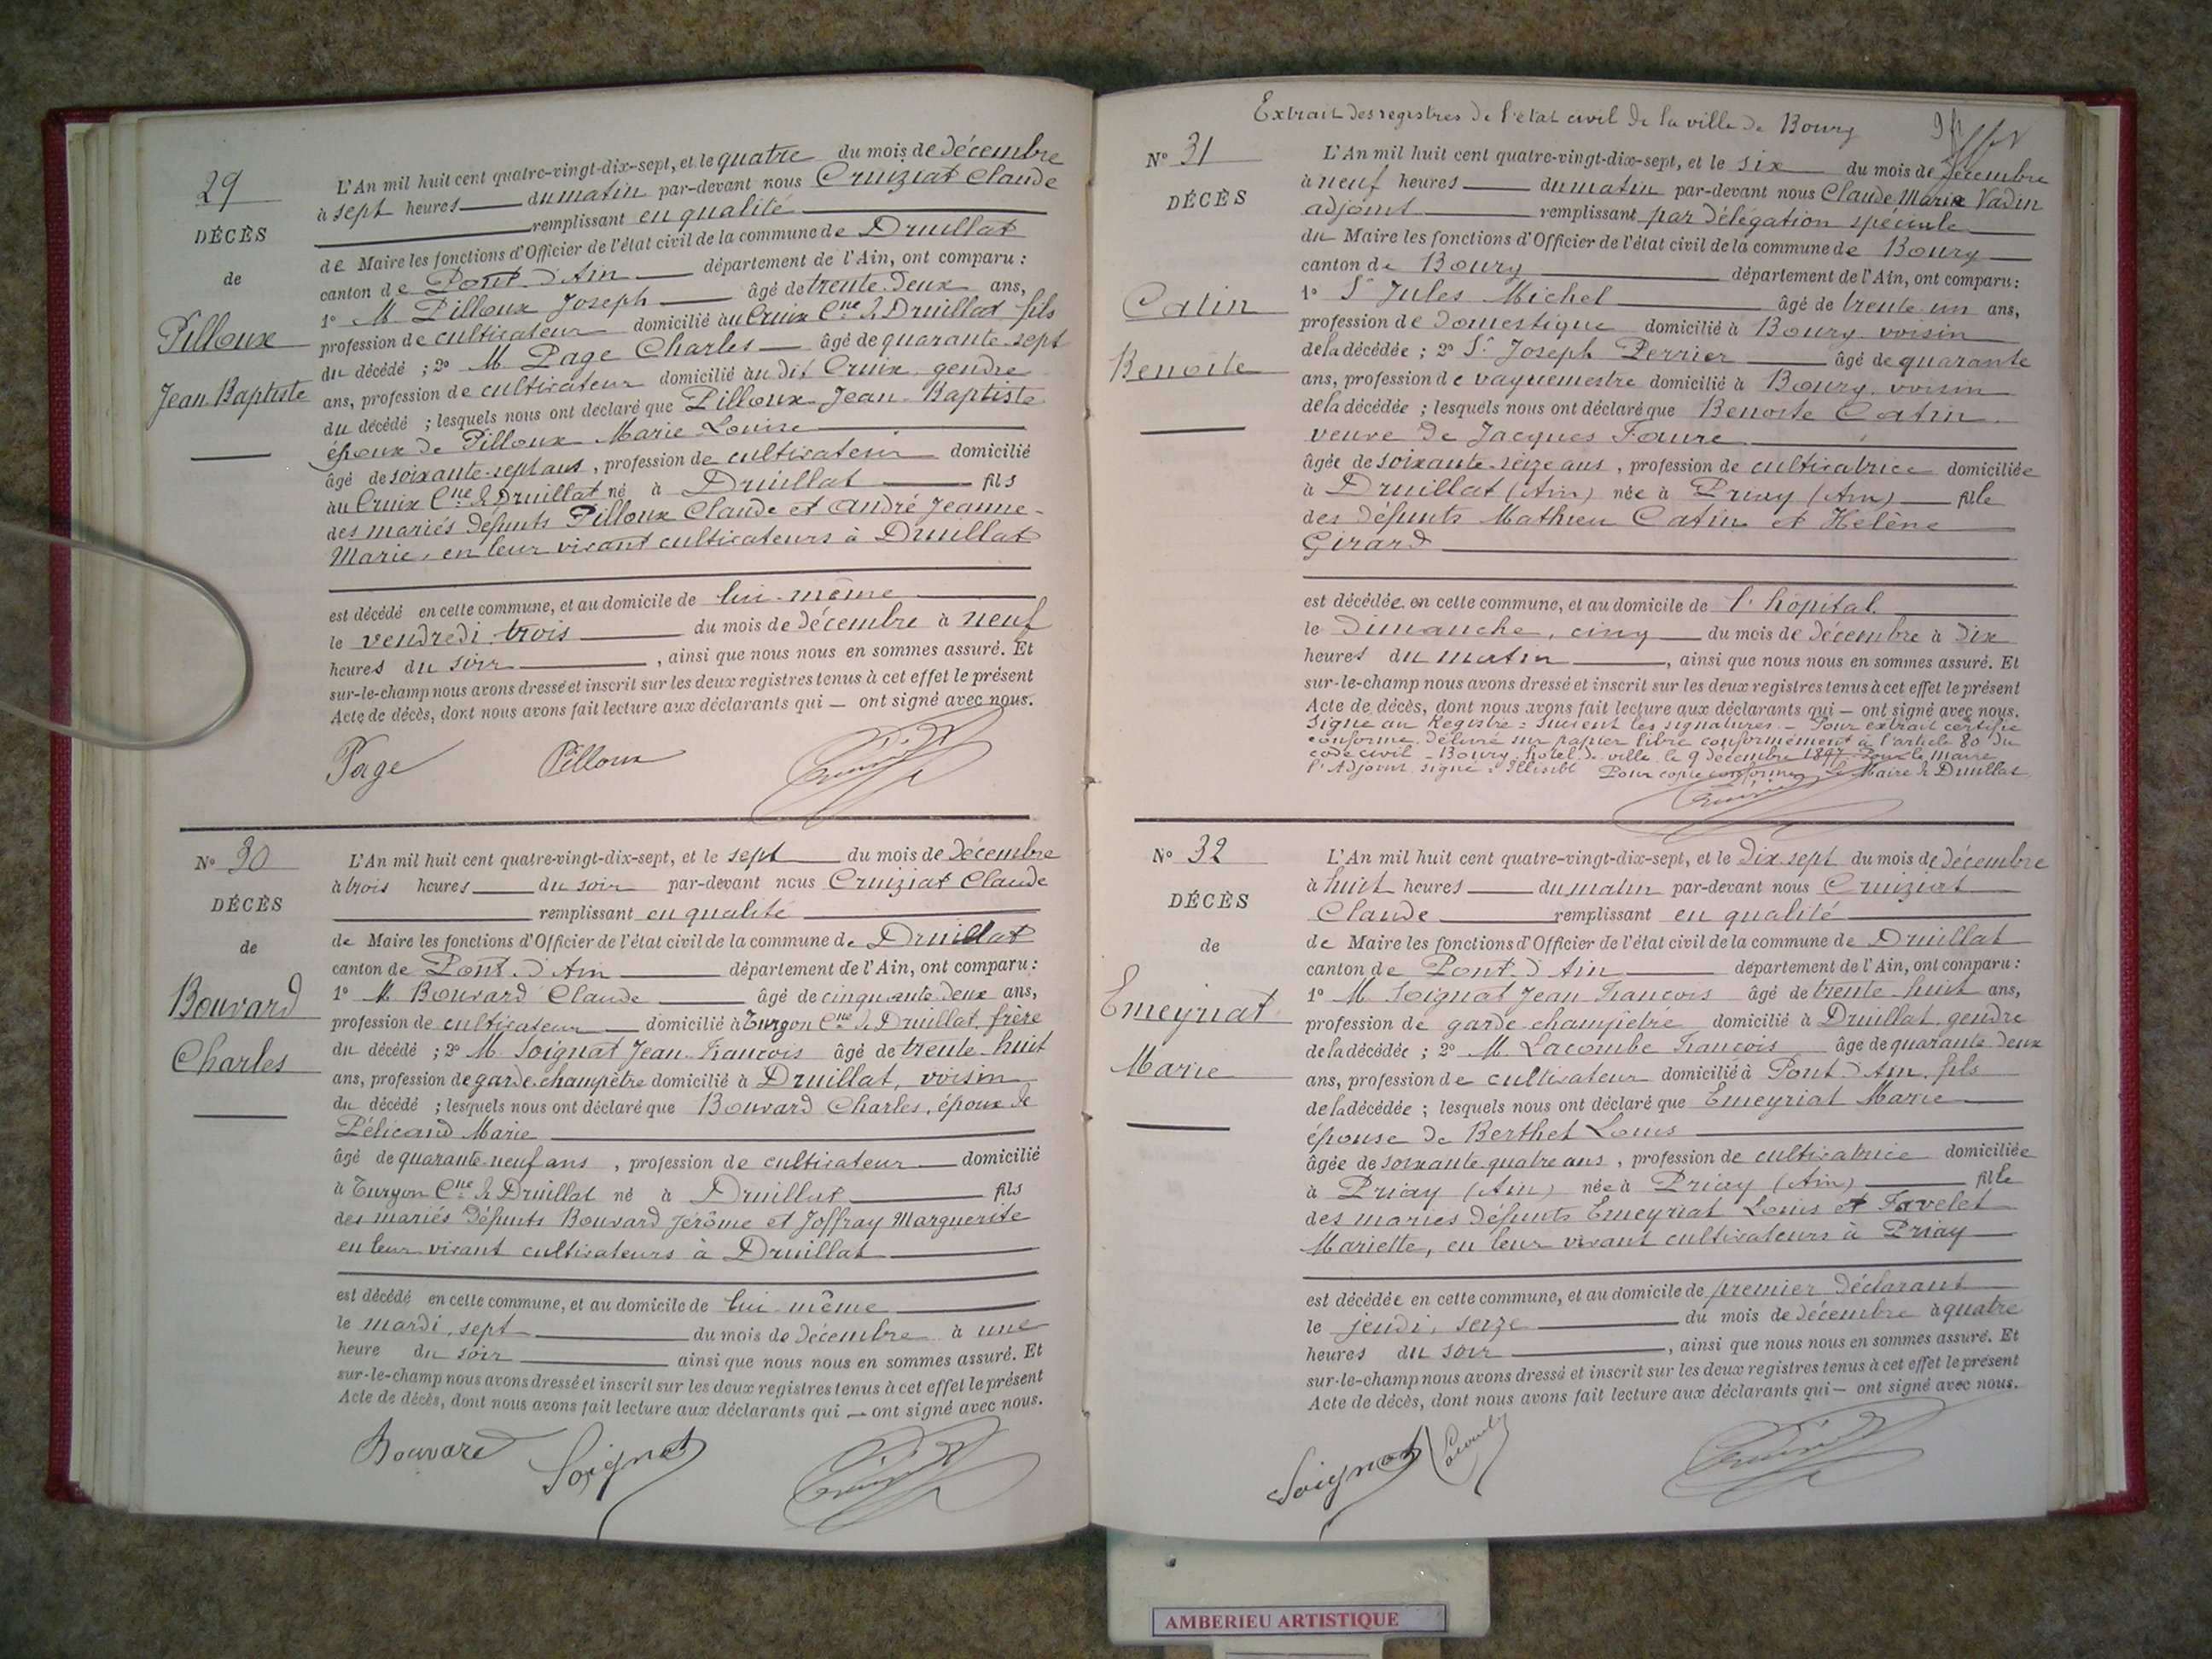 29
DÉCÈS
de
Pilloux
Jean-Baptiste
L'An mil huit cent quatre-vingt-dix-sept, et le quatre du mois de décembre
à sept heures du matin par-devant nous Cruiziat Claude
remplissant en qualité
de Maire les fonctions d'Officier de l'état civil de la commune de Druillat
canton de Pont-d'Ain département de l'Ain, ont comparu :
1° M Pilloux Joseph âgé de trente-deux ans,
profession de cultivateur domicilié au Cruix Cne de Druillat fils
du décédé ; 2° M. Page Charles âgé de quarante-sept
ans, profession de cultivateur domicilié au dit Cruix, gendre
du décédé ; lesquels nous ont déclaré que Pilloux Jean-Baptiste
époux de Pilloux Marie-Louise
âgé de soixante-sept ans, profession de cultivateur domicilié
au Cruix Cne de Druillat né à Druillat fils
des mariés défunts Pilloux Claude et André Jeanne-
Marie, en leur vivant cultivateurs à Druillat
est décédé en cette commune, et au domicile de lui-même
le vendredi, trois du mois de décembre à neuf
heures du soir, ainsi que nous nous en sommes assuré. Et
sur-le-champ nous avons dressé et inscrit sur les deux registres tenus à cet effet le présent
Acte de décès, dont nous avons fait lecture aux déclarants qui — ont signé avec nous.
Page Pilloux
N° 30
DÉCÈS
de
Bouvard
Charles
L'An mil huit cent quatre-vingt-dix-sept, et le sept du mois de décembre
à trois heures du soir par-devant nous Cruiziat Claude
remplissant en qualité
de Maire les fonctions d'Officier de l'état civil de la commune de Druillat
canton de Pont-d'Ain département de l'Ain, ont comparu :
1° M Bouvard Claude âgé de cinquante-deux ans,
profession de cultivateur domicilié à Turgon Cne de Druillat, frère
du décédé ; 2° M. Soignat Jean-François âgé de trente-huit
ans, profession de garde-champêtre domicilié à Druillat, voisin
du décédé ; lesquels nous ont déclaré que Bouvard Charles, époux de
Pélicand Marie
âgé de quarante-neuf ans, profession de cultivateur domicilié
à Turgon Cne de Druillat né à Druillat fils
des mariés défunts Bouvard Jérôme et Joffray Marguerite
en leur vivant cultivateurs à Druillat
est décédé en cette commune, et au domicile de lui-même
le mardi, sept du mois de décembre à une
heure du soir ainsi que nous nous en sommes assuré. Et
sur-le-champ nous avons dressé et inscrit sur les deux registres tenus à cet effet le présent
Acte de décès, dont nous avons fait lecture aux déclarants qui — ont signé avec nous.
Bouvard Soignat
Extrait des registres de l'état civil de la ville de Bourg
N° 31
DÉCÈS
Catin
Benoite
L'An mil huit cent quatre-vingt-dix-sept, et le six du mois de décembre
à neuf heures du matin par-devant nous Claude Marie Vadin
adjoint remplissant par délégation spéciale
du Maire les fonctions d'Officier de l'état civil de la commune de Bourg
canton de Bourg département de l'Ain, ont comparu :
1° Sr Jules Michel âgé de trente-un ans,
profession de domestique domicilié à Bourg, voisin
de la décédée ; 2° Sr Joseph Perrier âgé de quarante
ans, profession de vaguemestre domicilié à Bourg, voisin
de la décédée ; lesquels nous ont déclaré que Benoite Catin
veuve de Jacques Faure
âgée de soixante-seize ans, profession de cultivatrice domiciliée
à Druillat (Ain) née à Priay (Ain) fille
des défunts Mathieu Catin et Helène
Girard
est décédée en cette commune, et au domicile de l'hôpital
le Dimanche, cinq du mois de décembre à dix
heures du matin, ainsi que nous nous en sommes assuré. Et
sur-le-champ nous avons dressé et inscrit sur les deux registres tenus à cet effet le présent
Acte de décès, dont nous avons fait lecture aux déclarants qui — ont signé avec nous.
Signé au Registre : Suivent les signatures. — Pour extrait certifié
conforme. Délivré sur papier libre conformément à l'article 80 du
code civil — Bourg, hôtel de ville le 9 décembre 1897 Pour le Maire
l'Adjoint signé : Illisible Pour copie conforme, le Maire de Druillat
N° 32
DÉCÈS
de
Emeyriat
Marie
L'An mil huit cent quatre-vingt-dix-sept, et le dix-sept du mois de décembre
à huit heures du matin par-devant nous Cruiziat
Claude remplissant en qualité
de Maire les fonctions d'Officier de l'état civil de la commune de Druillat
canton de Pont-d'Ain département de l'Ain, ont comparu :
1° M Soignat Jean François âgé de trente-huit ans,
profession de garde-champêtre domicilié à Druillat, gendre
de la décédée ; 2° M. Lacombe François âgé de quarante-deux
ans, profession de cultivateur domicilié à Pont-d'Ain, fils
de la décédée ; lesquels nous ont déclaré que Emeyriat Marie
épouse de Berthet Louis
âgée de soixante-quatre ans, profession de cultivatrice domiciliée
à Priay (Ain) née à Priay (Ain) fille
des mariés défunts Emeyriat Louis et Favelet
Mariette, en leur vivant cultivateurs à Priay
est décédée en cette commune, et au domicile de premier déclarant
le jeudi, seize du mois de décembre à quatre
heures du soir, ainsi que nous nous en sommes assuré. Et
sur-le-champ nous avons dressé et inscrit sur les deux registres tenus à cet effet le présent
Acte de décès, dont nous avons fait lecture aux déclarants qui — ont signé avec nous.
Soignat
AMBERIEU ARTISTIQUE